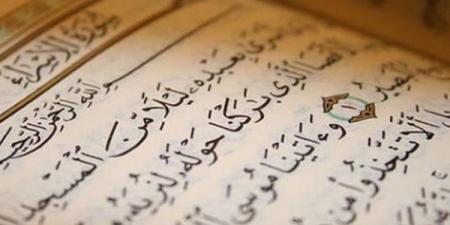 سُورَةُ الْإِسْرَاءِ
بِسْمِ اللَّهِ الرَّحْمَٰنِ الرَّحِيمِ
بِعَبْدِهِۦ لَيْلًا مِّنَ الْمَسْجِدِ
الْأَقْصَا الَّذِي بَٰرَكْنَا حَوْلَهُۥ لِنُرِيَهُۥ
الْبَصِيرُ ١ وَءَاتَيْنَا مُوسَى
أَلَّا تَتَّخِذُوا مِن